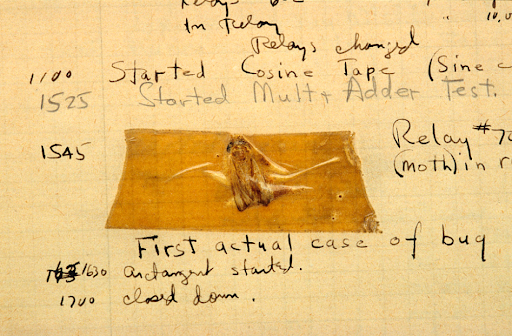 Relays
In Relay " 10.0
Relays changed
1100 Started Cosine Tape (Sine c
1525 Started Mult+ Adder Test.
1545 Relay #70
(moth) in r
First actual case of bug
1630 arctangent started.
1700 closed down.